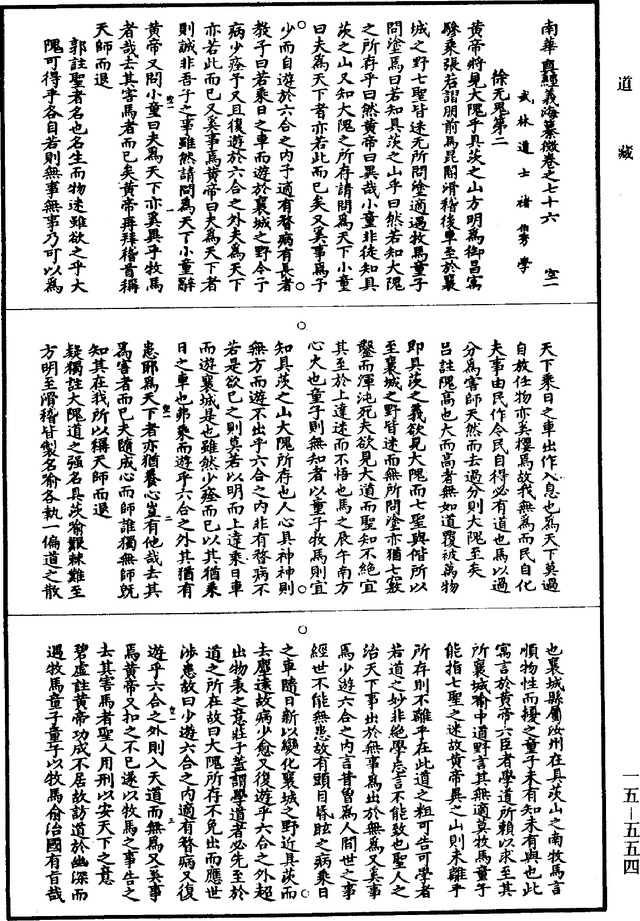 道藏
南華真經義海纂微卷之七十六 空一
武林道士褚伯秀學
徐无鬼第二
黃帝將見大隗乎具茨之山方明為御昌㝢
驂乘張若謵朋前馬昆閽滑稽後車至於襄
城之野七聖皆迷无所問塗適遇牧馬童子
問塗焉曰若知具茨之山乎曰然若知大隗
之所存乎曰然黃帝曰異哉小童非徒知具
茨之山又知大隗之所存請問為天下小童
曰夫為天下者亦若此而已矣又奚事焉予
少而自遊於六合之内予適有瞀病有長者
教予曰若乘日之車而遊於襄城之野今予
病少痊予又且復遊於六合之外夫為天下
亦若此而已又奚事焉黃帝曰夫為天下者
則誠非吾子之事雖然請問為天下小童辭
黃帝又問小童曰夫為天下亦奚異乎牧馬
者哉去其害馬者而已矣黃帝再拜稽首稱
天師而退
郭註聖者名也名生而物迷雖欲之乎大
隗可得乎各自若則無事無事乃可以為
天下乘日之車出作入息也為天下莫過
自放任物亦奚攖焉故我無為而民自化
夫事由民作令民自得必有道也馬以過
分為害師天然而去過分則大隗至矣
呂註隗高也大而高者無如道覆被萬物
即具茨之義欲見大隗而七聖與偕所以
至襄城之野皆迷而無所問塗亦猶七竅
鑿而渾沌死夫欲見大道而聖知不絕宜
其至於上達迷而不悟也馬之辰午南方
心火也童子則無知者以童子牧馬則宜
知具茨之山大隗所存也人心具神神則
無方而遊不出乎六合之内非有瞀病不
若是欲已之則莫若以明而上達乘日車
而遊襄城是也雖然少痊而已以其猶乘
日之車也弗乘而遊乎六合之外其猶有
患耶為天下者亦猶養心豈有他哉去其
為害者而已夫隨成心而師誰獨無師既
知其在我所以稱天師而退
疑獨註大隗道之强名具茨喻艱棘難至
方明至滑稽皆製名喻各執一偏道之散
也襄城縣屬汝州在具茨山之南牧馬言
順物性而擾之童子未有知未有與也此
寓言於黃帝六臣者學道所賴以求至其
所襄城喻中道野言其無適莫牧馬童子
能指七聖之迷故黃帝異之山則未離乎
所存則不離乎在此道之粗可告可學者
若道之妙非絕學忘言不能致也聖人之
治天下事出於無事為出於無為又奚事
焉少遊六合之内言昔曾為人間世之事
經世不能無患故有頭目昏眩之病乘日
之車隨日新以變化襄城之野近具茨而
去塵遠故病少愈又復遊乎六合之外超
出物表之意莊子蓋謂學道者必先至於
道之所在故曰大隗所存不免出而應世
涉患故曰少遊六合之内適有瞀病又復
遊乎六合之外則入天道而無為又奚事
焉黃帝又扣之不已遂以牧馬之事告之
去其害馬者聖人用刑以安天下之意
碧虛註黃帝功成不居故訪道於幽深而
遇牧馬童子童子以牧馬喻治國有旨哉
一五－五五四